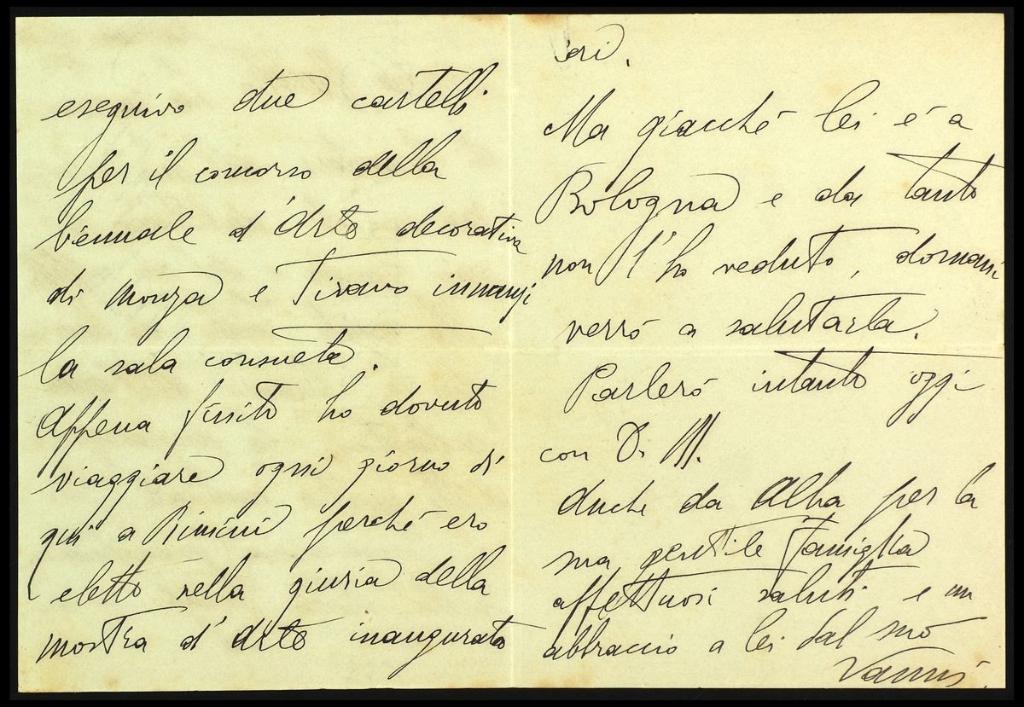 eseguivo due cartelli
per il concorso della
biennale d'Arte decorativa
di Monza e tiravo innanzi
la sala consueta.
Appena finito ho dovuto
viaggiare ogni giorno di
qui a Rimini perché ero
eletto nella giuria della
mostra d'Arte inaugurata
ori.
Ma giacché lei é a
Bologna e da tanto
non l'ho veduto, domani
verró a salutarla.
Parleró intanto oggi
con D. M.
Anche da Alba per la
sua gentile famiglia
affettuosi saluti e un
abbraccio a lei dal suo
Vannis.